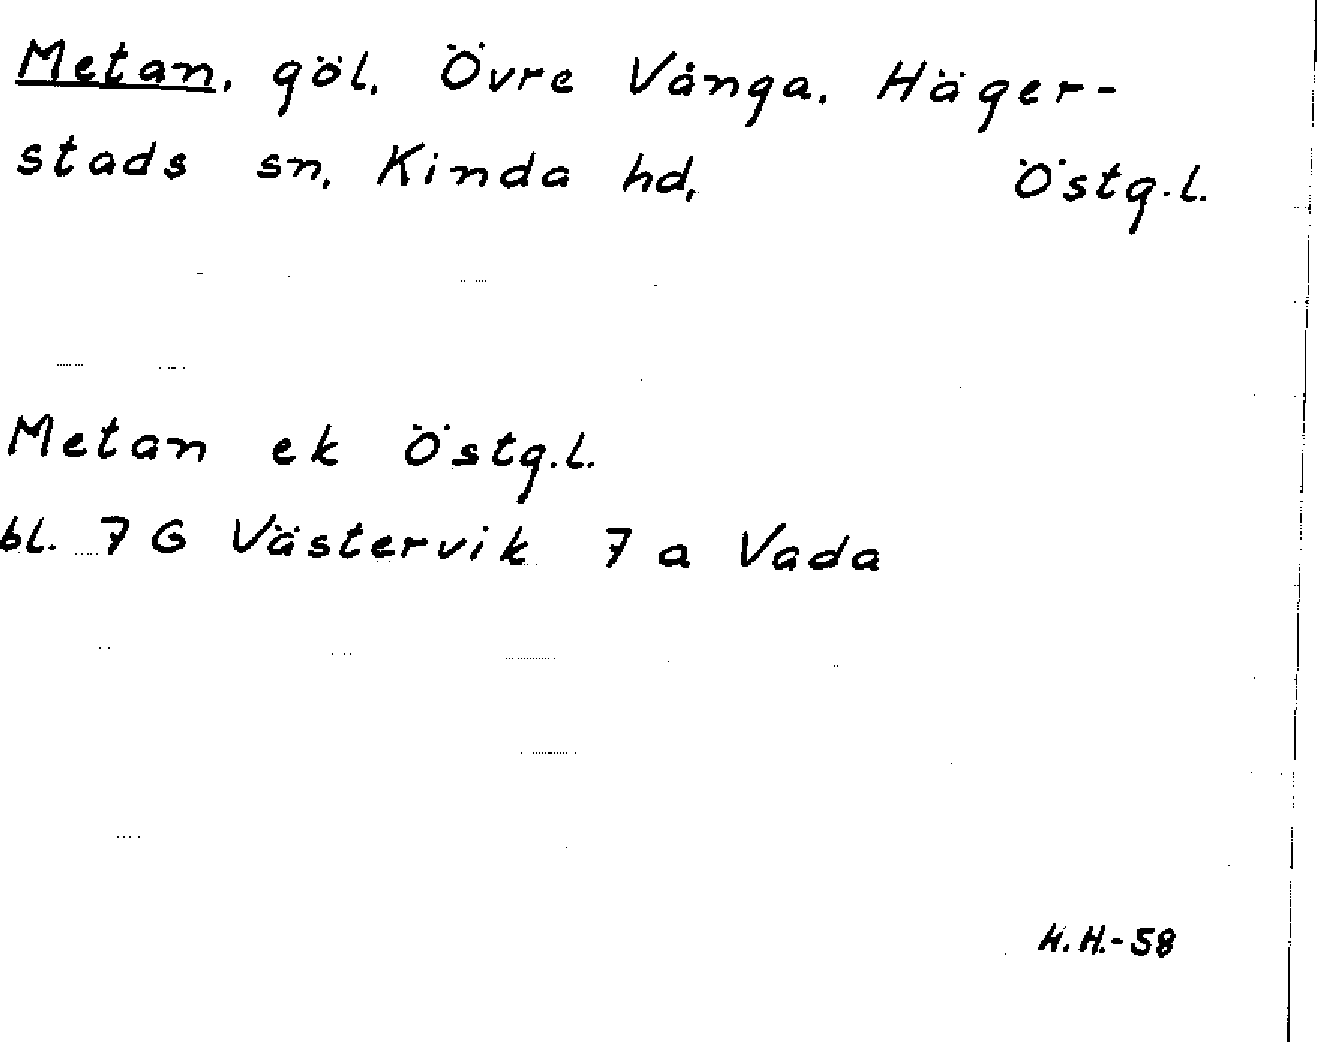 Metan, göl, Övre Vånga, Häger-
stads sn, Kinda hd, Östg.l.
Metan ek Östg.l.
bl. 7 G Västervik 7 a Vada
H.H.-58